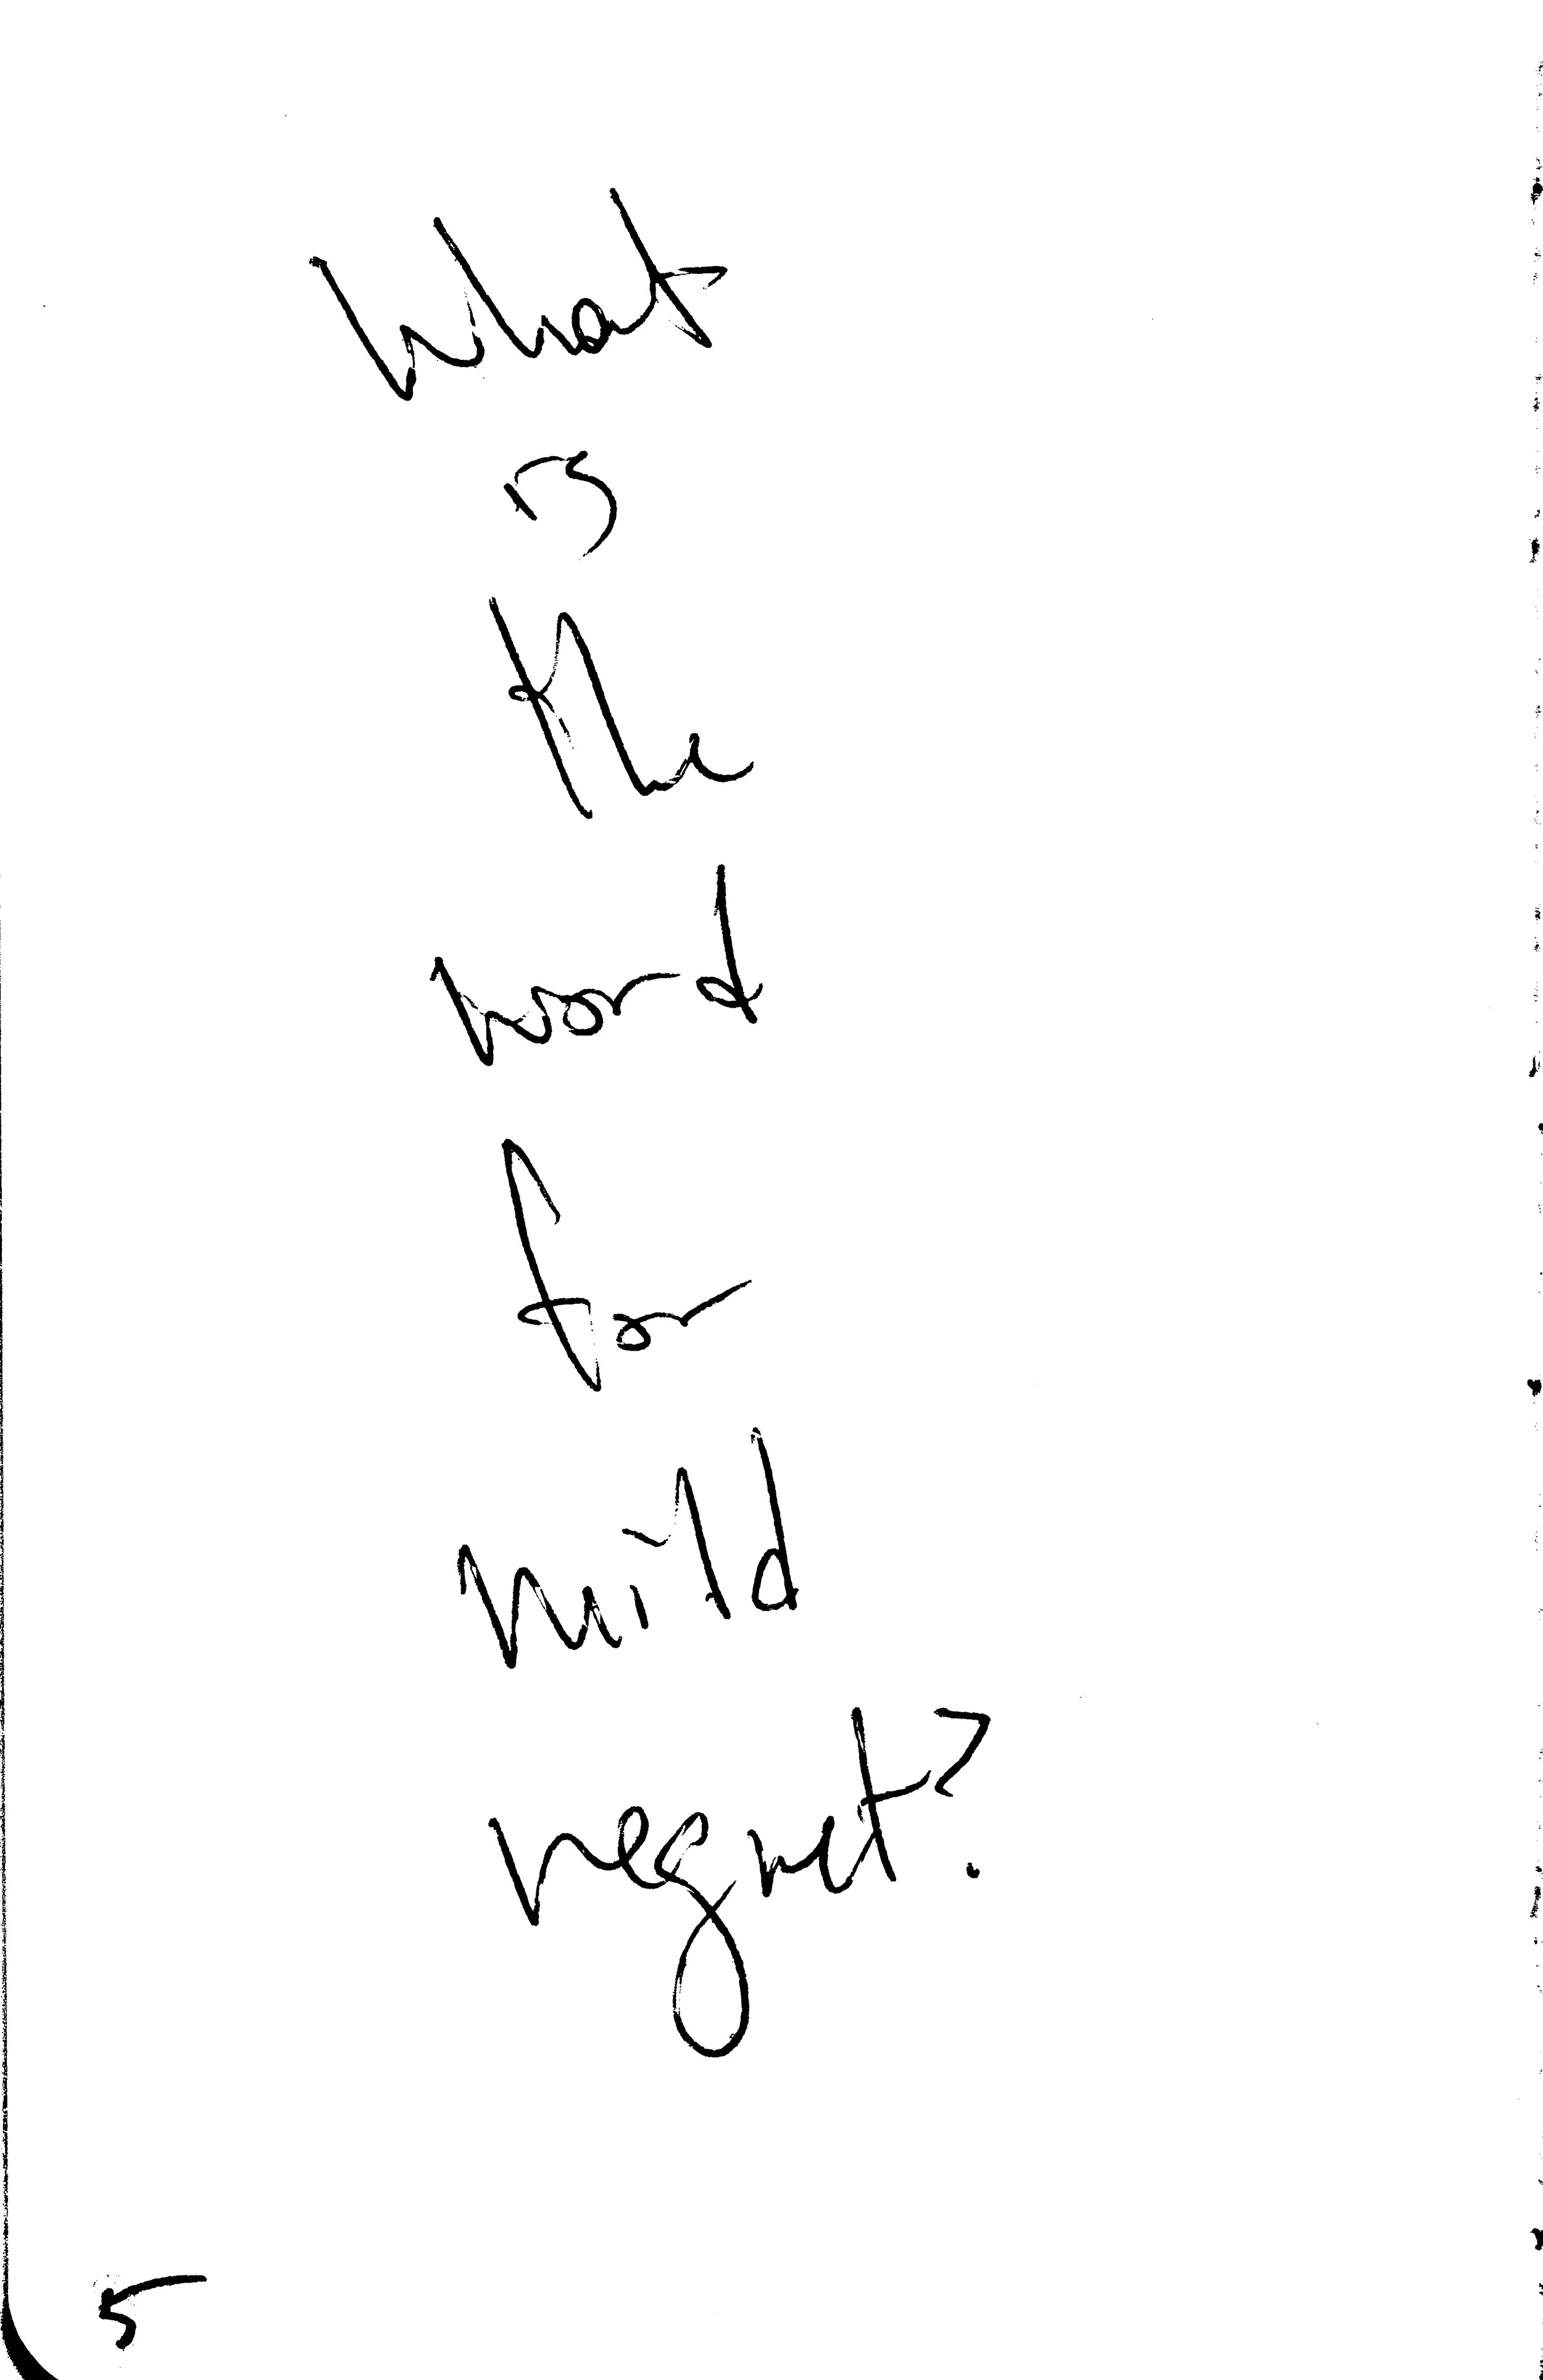 What
is
the
word
for
mild
regret?
5